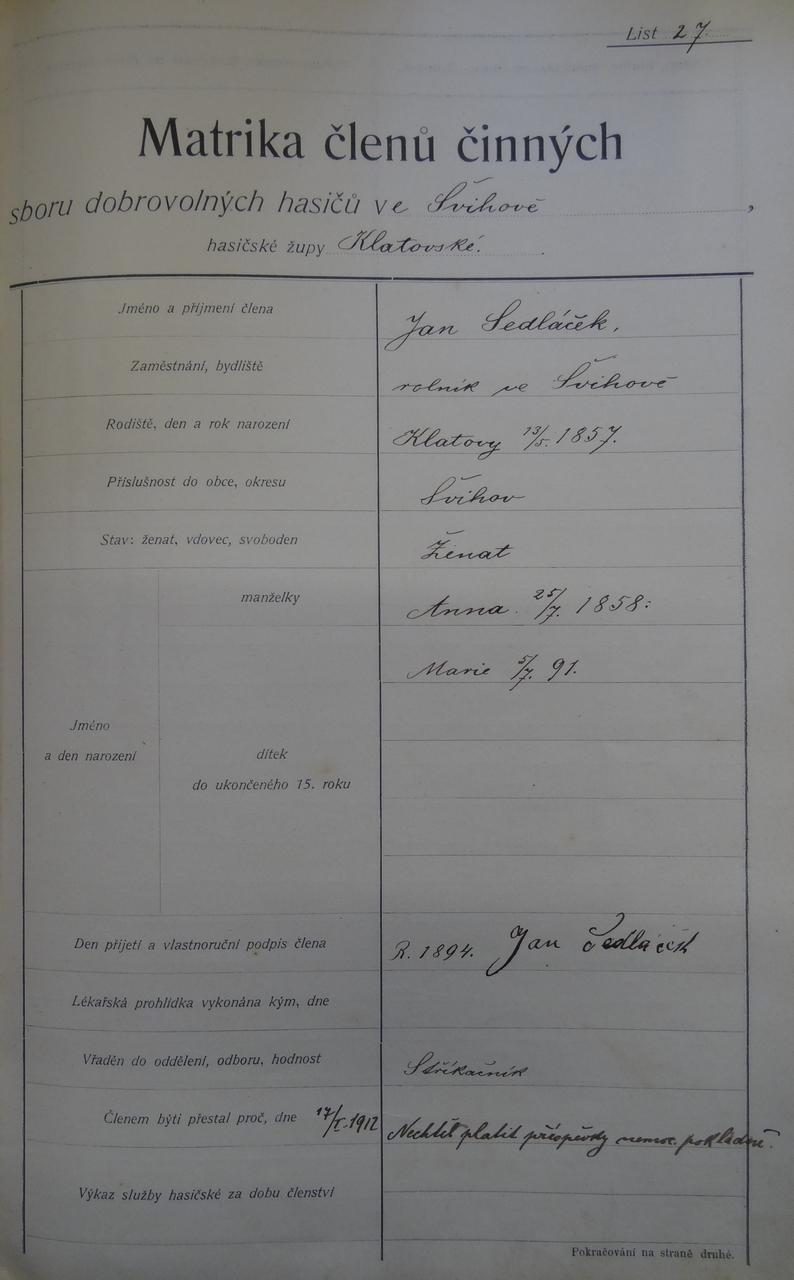 List 27
Matrika členů činných
sboru dobrovolných hasičů ve Švihově,
hasičské župy Klatovské.
Jméno a příjmení člena Jan Sedláček,
Zaměstnání, bydliště rolník ve Švihově
Rodiště, den a rok narození Klatovy 13/5. 1857.
Příslušnost do obce, okresu Švihov
Stav: ženat, vdovec, svoboden Ženat
manželky Anna. 25/7. 1858:
Marie 5/7. 91.
Jméno
a den narození
dítek
do ukončeného 15. roku
Den přijetí a vlastnoruční podpis člena R. 1894. Jan Sedláček
Lékařská prohlídka vykonána kým, dne
Vřaděn do oddělení, odboru, hodnost Stříkačník
Členem býti přestal proč, dne 17/I. 1912 Nechtěl platit příspěvky nemoc. pokladně.
Výkaz služby hasičské za dobu členství
Pokračování na straně druhé.